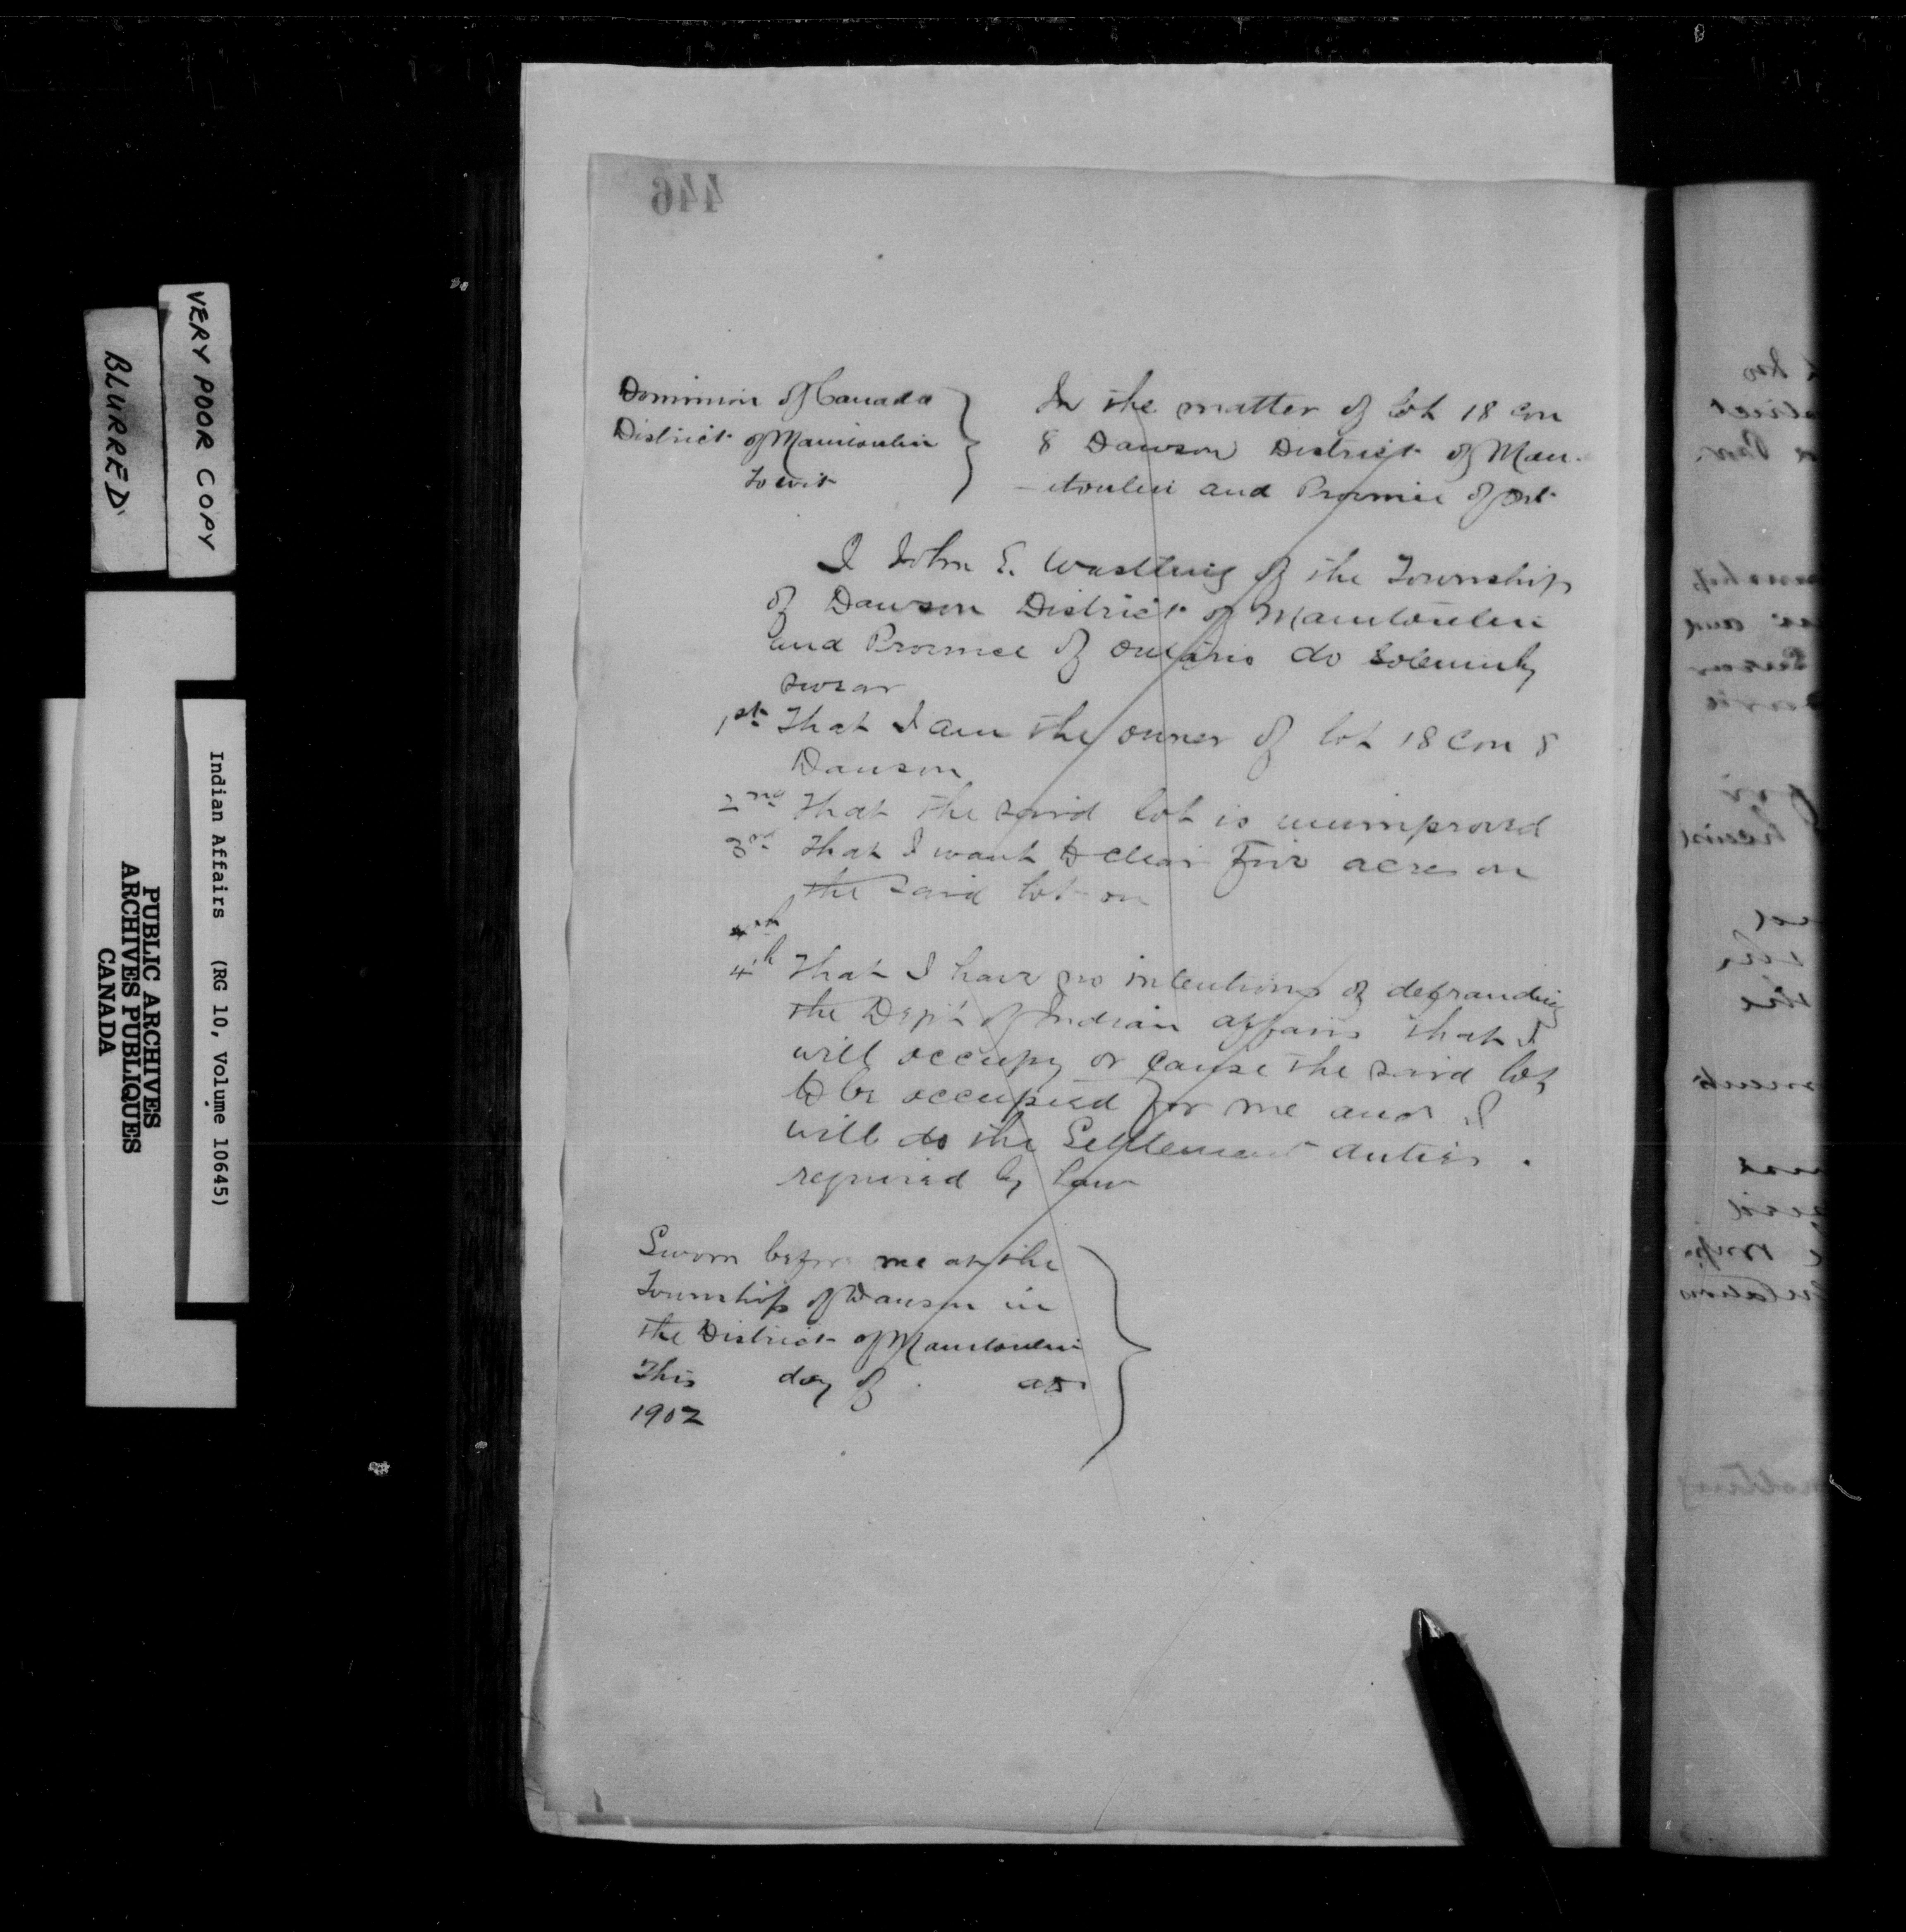 446
Dominion of Canada
District of Manitoulin
To wit
In the matter of lot 18 con
8 Dawson District of Man-
-itoulin and Province of Ont
I John E. of the Township
of Dawson District of Manitoulin
and Province of Ontario do solemnly
swear
1st That I am the owner of lot 18 Con 8
Dawson
2nd That the said lot is unimproved
3rd That I want to clear Five acres on
the said lot on
4th
4th That I have no intentions of defrauding
the Dept of Indian affairs that I
will occupy or cause the said lot
to be occupied for me and I
will do the Settlement duties.
required by law
Sworn before me at the
Township of Dawson in
the District of Manitoulin
This day of AD
1902
VERY POOR COPY
BLURRED
Indian Affairs (RG 10, Volume 10645)
PUBLIC ARCHIVES
ARCHIVES PUBLIQUES
CANADA